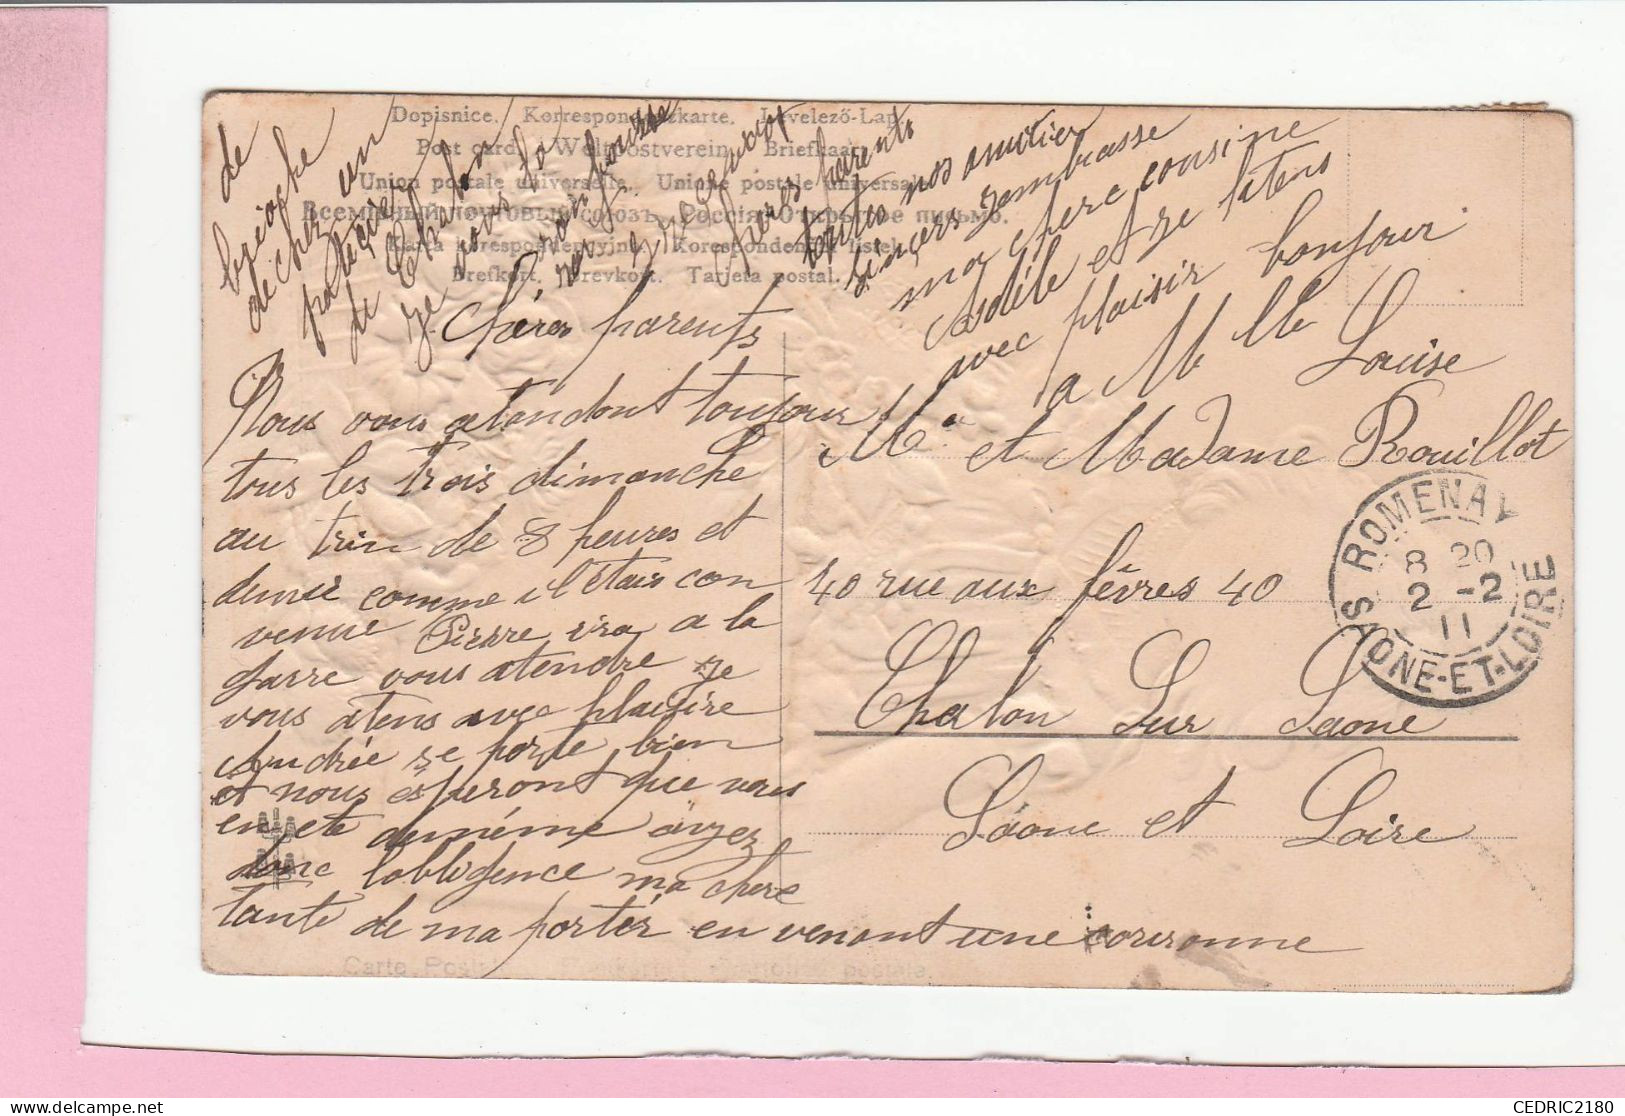 Dopisnice. Korrespondenzkarte. Levelező-Lap
Post card. Weltpostverein. Briefkaart
Union postale universelle. Unione postale universale
Всемірный почтовый союзъ. Россія. Открытое письмо.
Karta korespondencyjna. Korespondenční listek.
Brefkort. Brevkort. Tarjeta postal.
Chères parents
Nous vous atandont toujour
tous les trois dimanche
au trin de 8 heures et
demie comme il étais con
venue Pierre ira a la
garre vous atendre je
vous atens avec plaisire
Andrée se porte bien
et nous ésperont que vous
en ete au méme ayez
donc l'obbligence ma chere
tante de ma porter en venant une couronne
de
brioche
de chez un
patiçier
de Chalon
je vous la
rembourserez
Recevez
chères parents
toutes nos amitier
sinçers jembrasse
ma chere cousine
Adéle et je latens
avec plaisir bonjour
a Mlle Louise
Mr et Madame Rouillot
40 rue aux fêvres 40
Chalon Sur Saone
Saone et Loire
ROMENAY
8 20
2 -2
11
SAONE-ET-LOIRE
CEDRIC2180